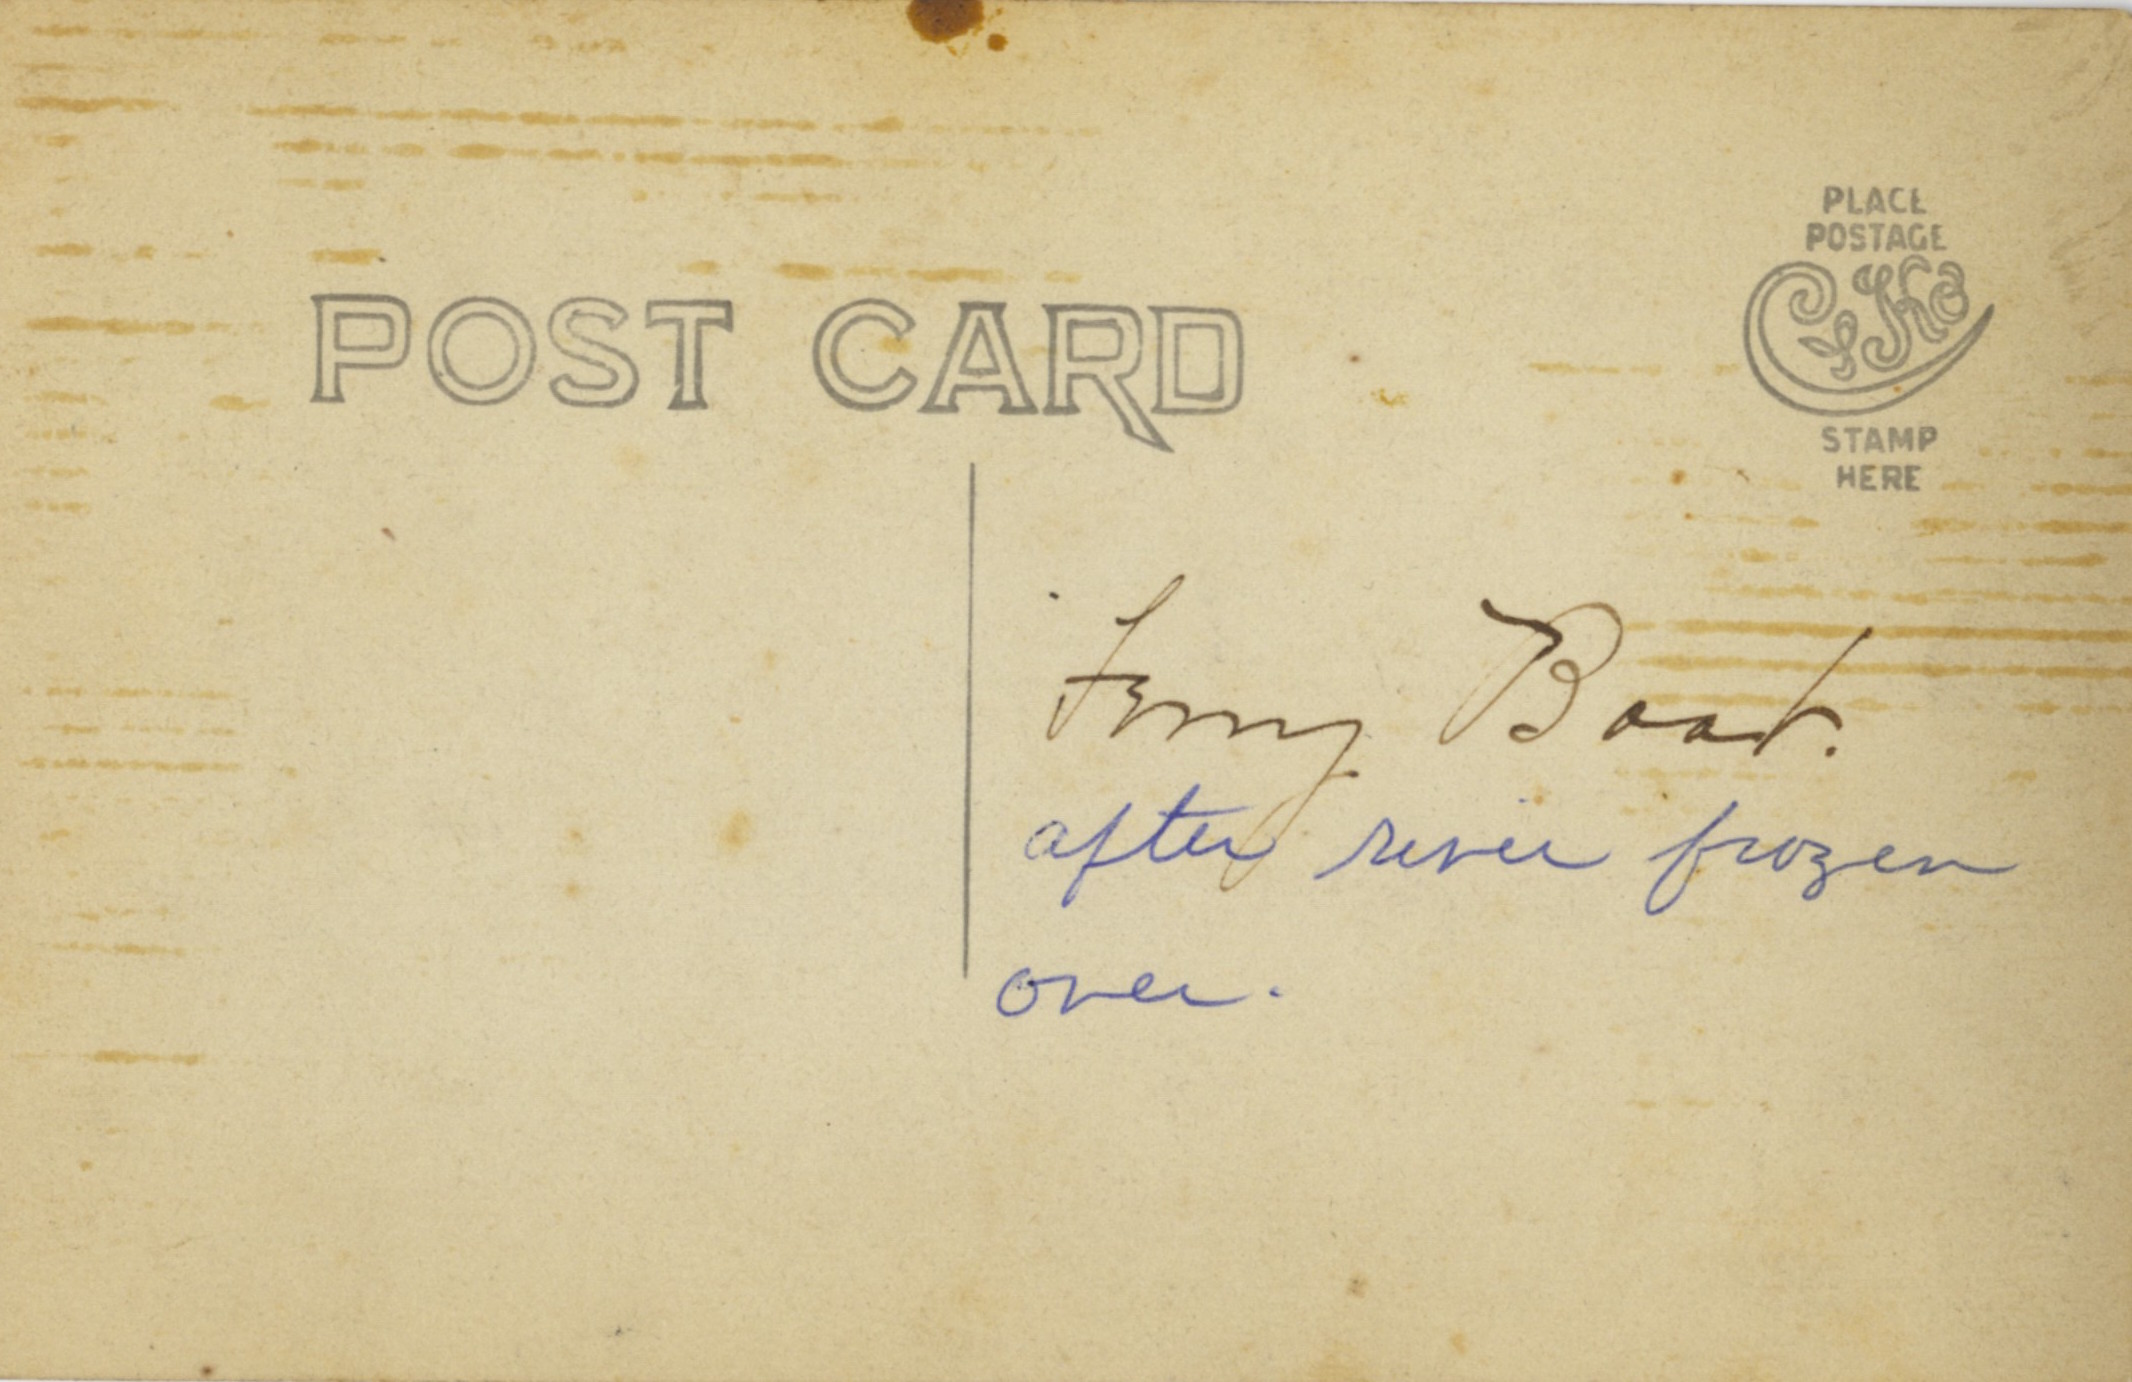 POST CARD
PLACE
POSTAGE
STAMP
HERE
Ferry Boat.
after river frozen
over.